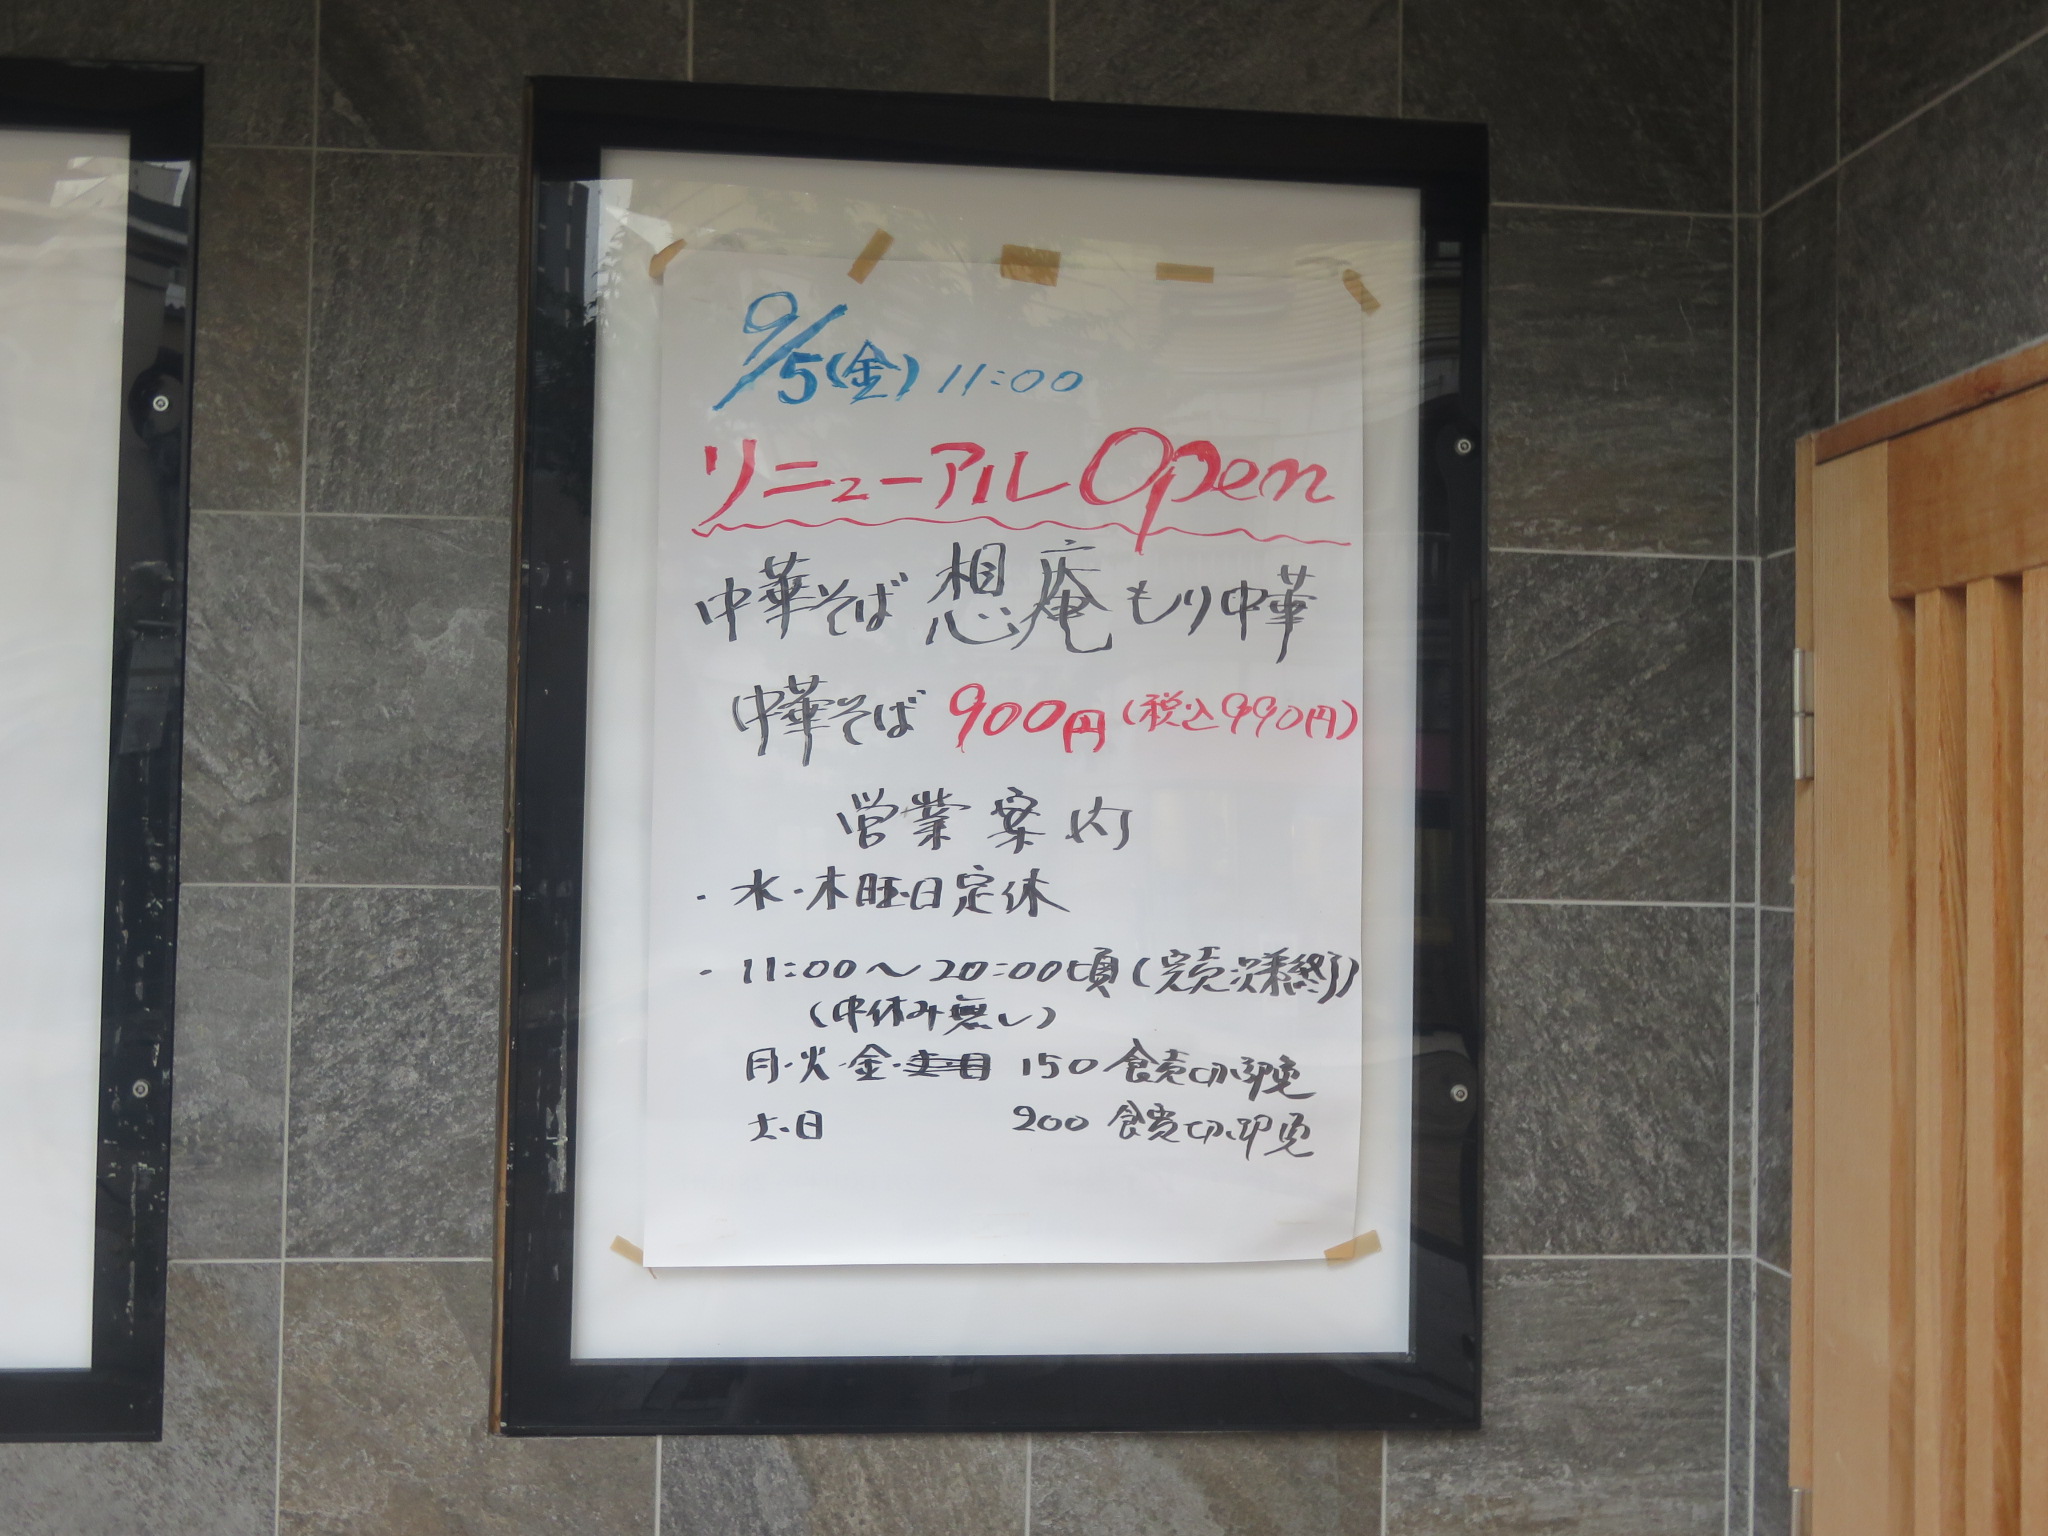 9/5(金) 11:00
リニューアルOpen
中華そば 想庵 もり中華
中華そば 900円(税込990円)
営業案内
・水・木曜日定休
・11:00〜20:00頃(完売次第終了)
(中休み無し)
月・火・金・ 150食売切御免
土・日 200食売切御免